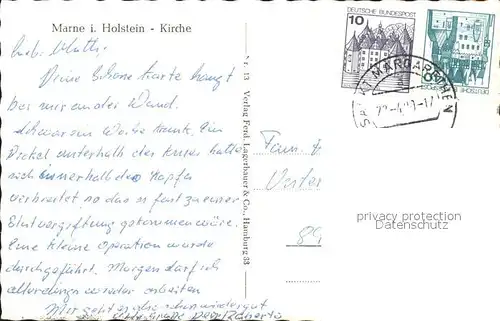 Marne i. Holstein - Kirche
Lieb. Mutti,
Deine schöne Karte hängt
bei mir an der Wand.
Woche krank. Ein
Pickel unterhalb der Nase hatte
sich innerhalb des Kopfes
verbreitet so das es fast zu einer
Blutvergiftung gekommen wäre.
Eine kleine Operation wurde
durchgeführt. Morgen darf ich
allerdings wieder arbeiten
Mir geht es also schon wieder gut
Nr. 13 Verlag Ferd. Lagerbauer & Co., Hamburg 33
10 DEUTSCHE BUNDESPOST
DEUTSCHE BUNDESPOST
ST. MARGARETHEN
Fam.
privacy protection
Datenschutz